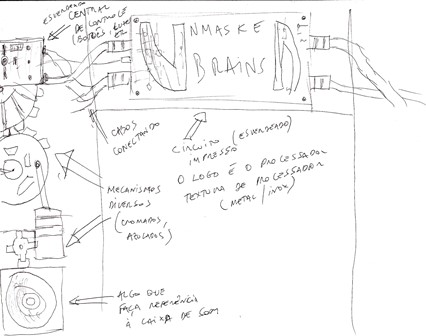 ESVERDEADO
CENTRAL
DE CONTROLE
(BOTÕES, LUZES
ETC
UNMASKED
BRAINS
CABOS
CONECTANDO
CIRCUITO (ESVERDEADO)
IMPRESSO
O LOGO É O PROCESSADOR
TEXTURA DE PROCESSADOR
(METAL / INOX)
MECANISMOS
DIVERSOS
(CROMADOS,
AZULADOS)
ALGO QUE
FAÇA REFERÊNCIA
À CAIXA DE SOM